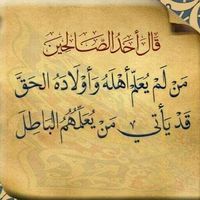 قَالَ أَحَدُ الصَّالِحِينَ
مَنْ لَمْ يُعَلِّمْ أَهْلَهُ وَأَوْلَادَهُ الحَقَّ
قَدْ يَأْتِي مَنْ يُعَلِّمُهُمُ البَاطِلَ